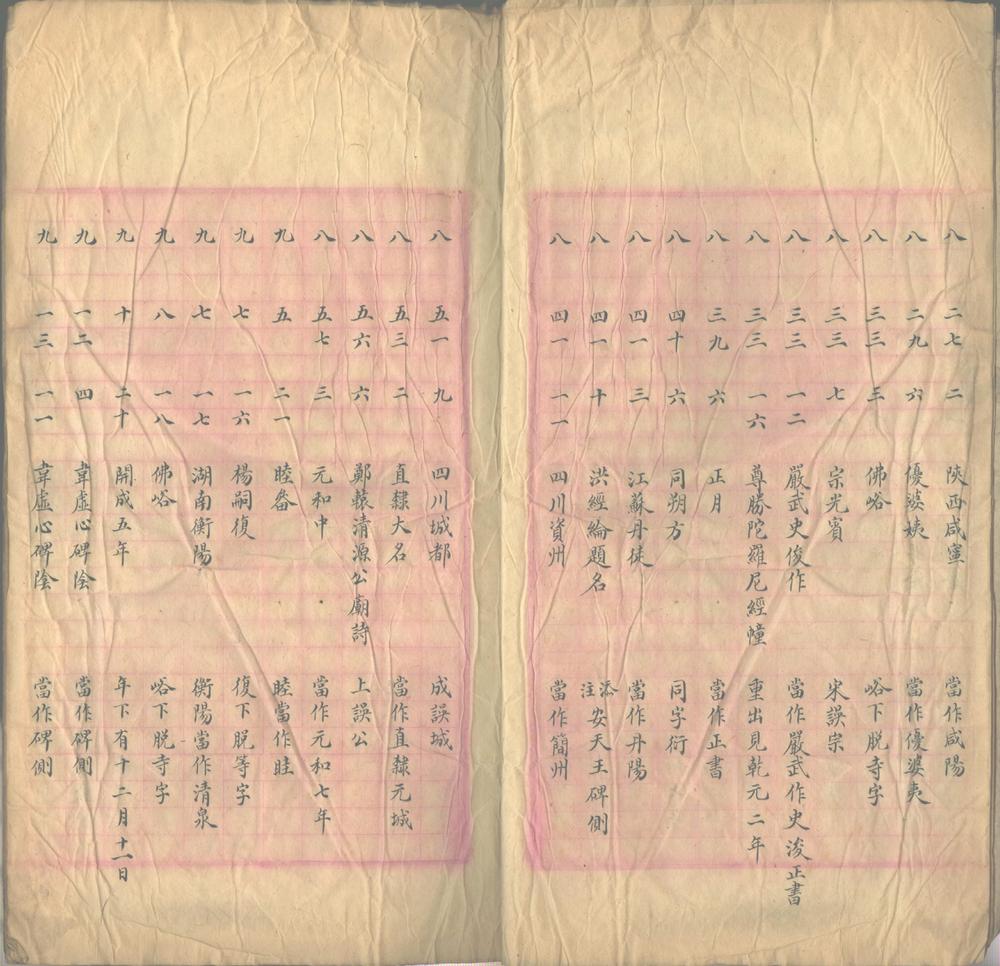 八 二七 二 陝西咸寧 當作咸陽
八 二九 六 優婆姨 當作優婆夷
八 三三 三 佛峪 峪下脱寺字
八 三三 七 宗光賓 宋誤宗
八 三三 一二 嚴武史俊作 當作嚴武作史浚正書
八 三三 一六 尊勝陀羅尼經幢 重出見乾元二年
八 三九 六 正月 當作正書
八 四十 六 同朔方 同字衍
八 四一 三 江蘇丹徒 當作丹陽
八 四一 十 洪經綸題名 添注安天王碑側
八 四一 一一 四川資州 當作簡州
八 五一 九 四川城都 成誤城
八 五三 二 直隸大名 當作直隸元城
八 五六 六 鄭轅清源公廟詩 上誤公
八 五七 三 元和中 當作元和七年
九 五 二一 睦畚 睦當作眭
九 七 一六 楊嗣復 復下脱等字
九 七 一七 湖南衡陽 衡陽當作清泉
九 八 一八 佛峪 峪下脱寺字
九 十 二十 開成五年 年下有十二月十一日
九 一二 四 韋虛心碑陰 當作碑側
九 一三 一一 韋虛心碑陰 當作碑側